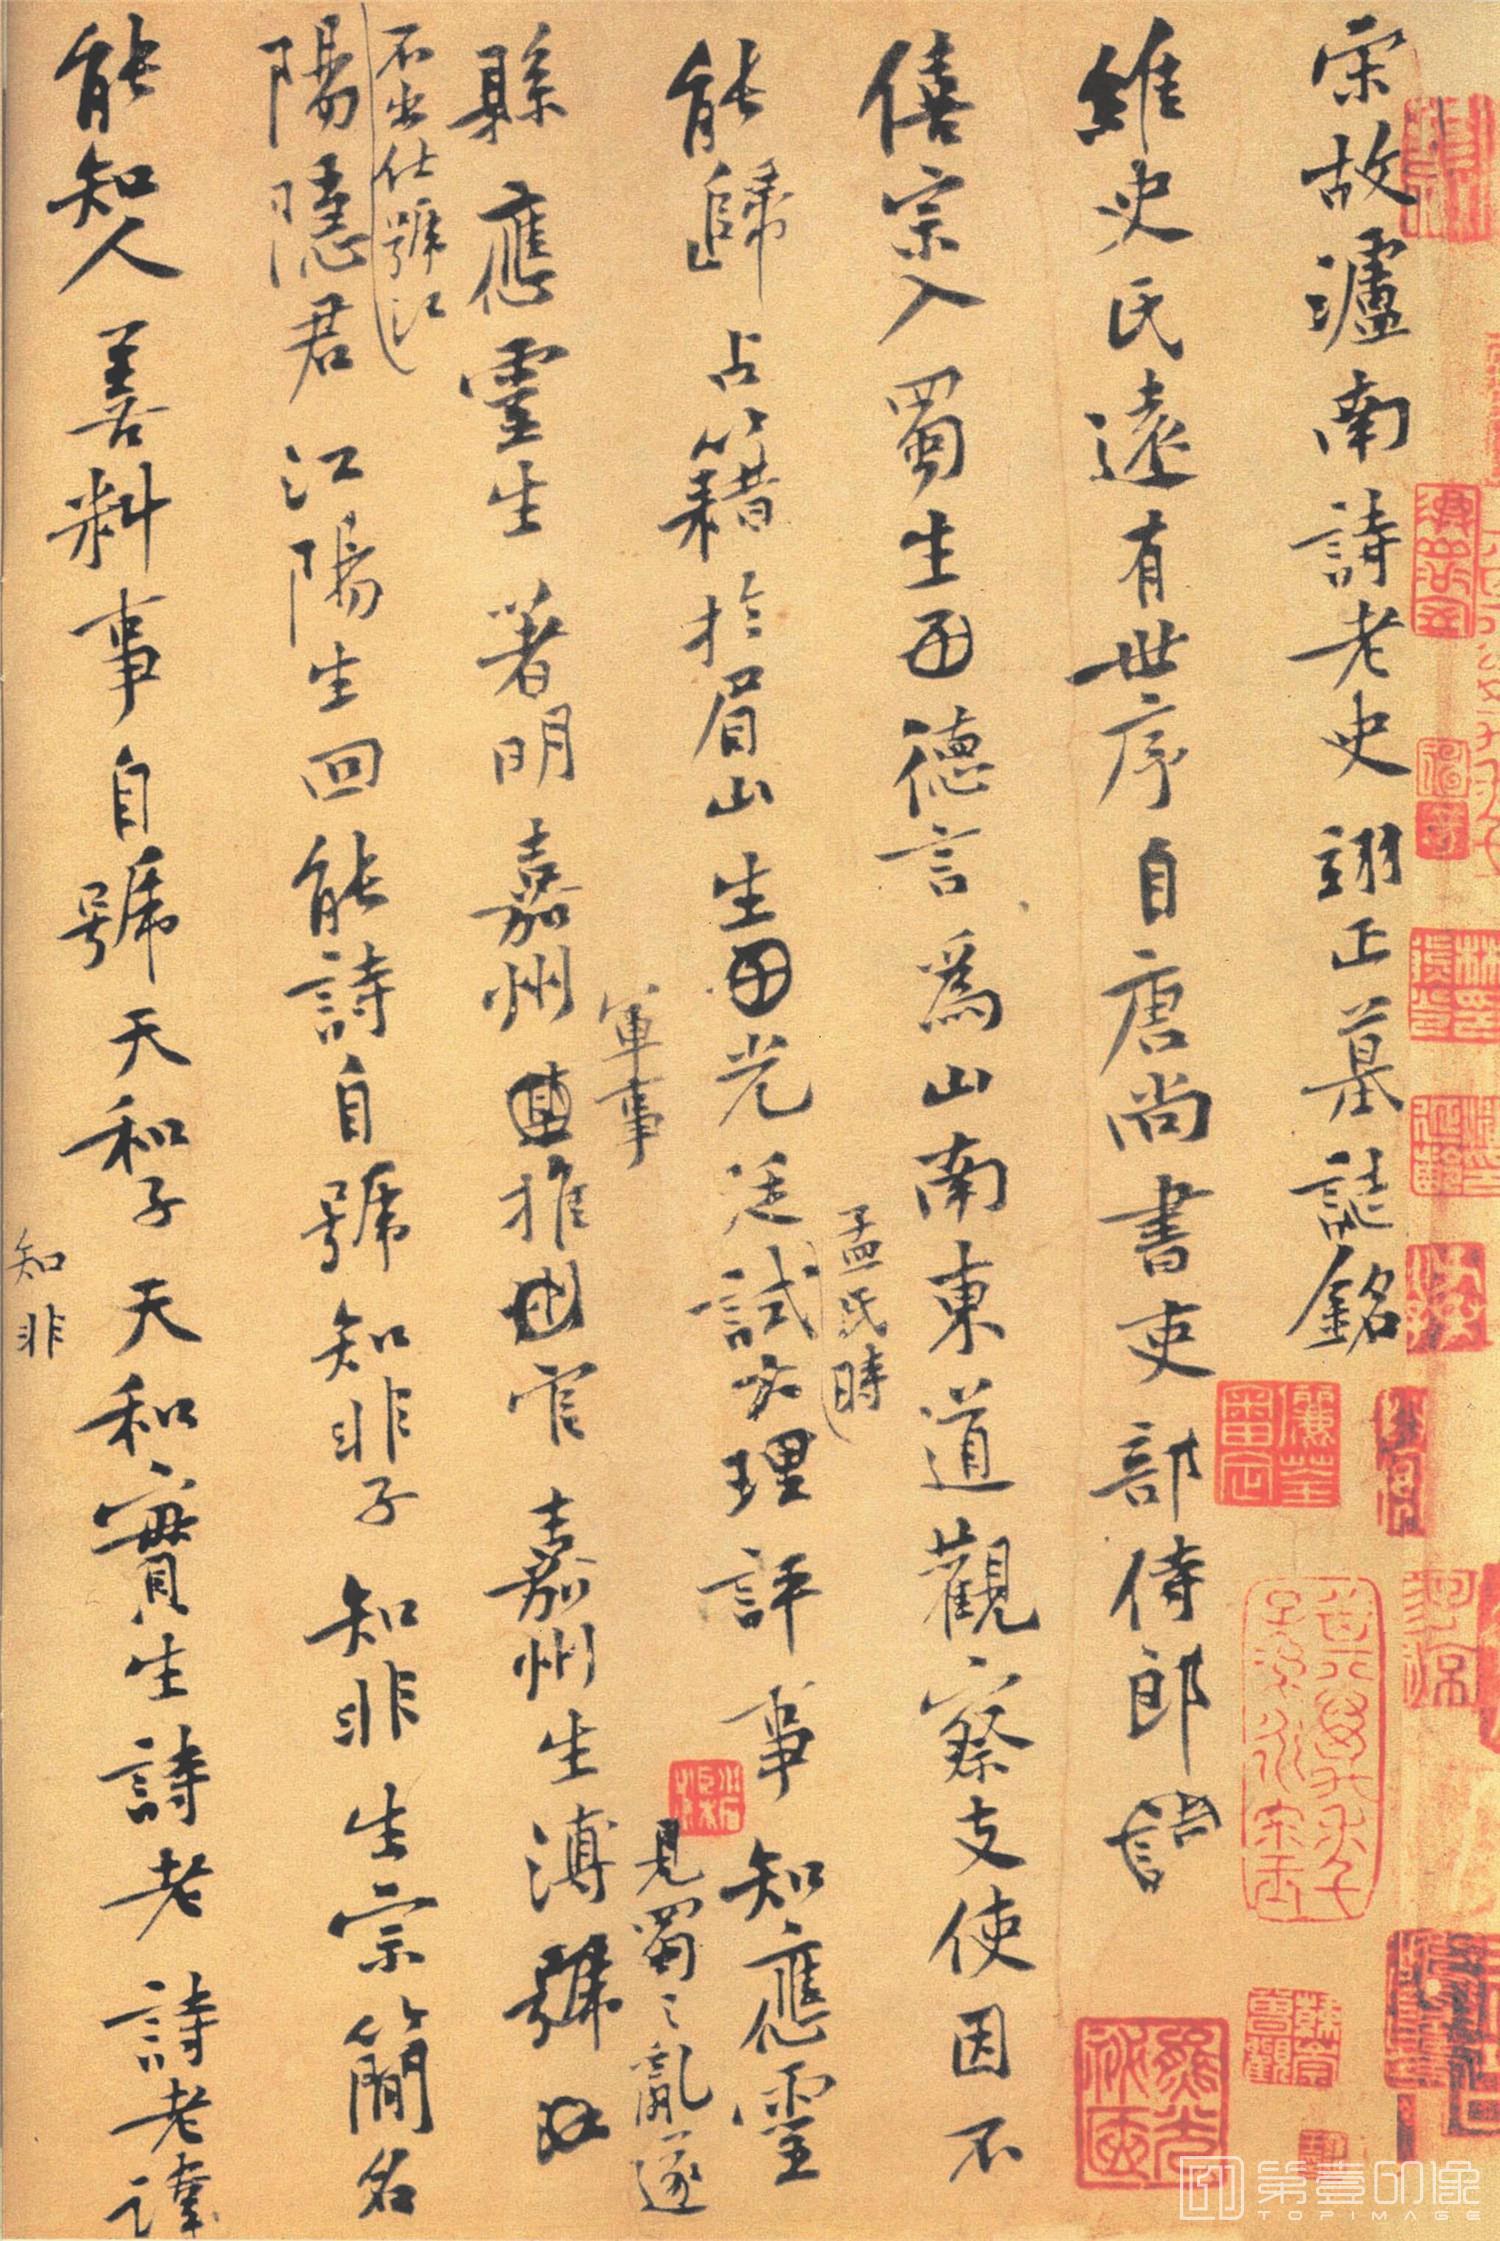 宋故瀘南詩老史翊正墓誌銘
維史氏遠有世序自唐尚書吏部侍郎
僖宗入蜀生德言為山南東道觀察支使因不
能歸占籍於眉山生光庭試大理評事知應靈
孟氏時
縣應靈生著明嘉州推官嘉州生溥
軍事
見蜀之亂遂
不出仕號江
陽隱君江陽生回能詩自號知非子知非生宗簡名
能知人善料事自號天和子天和實生詩老詩老諱
知非
第壹印像
TOPIMAGE